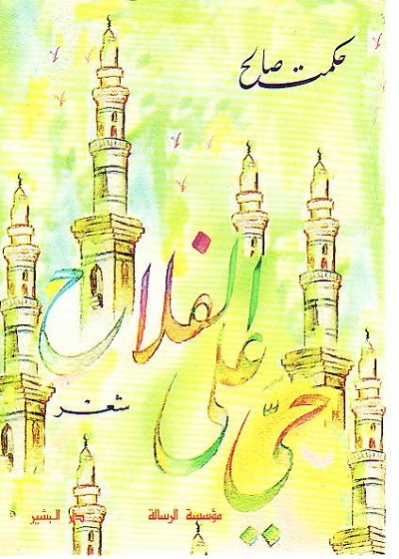 حكمت صالح
حيّ على الفلاح
شعر
مؤسسة الرسالة
دار البشير